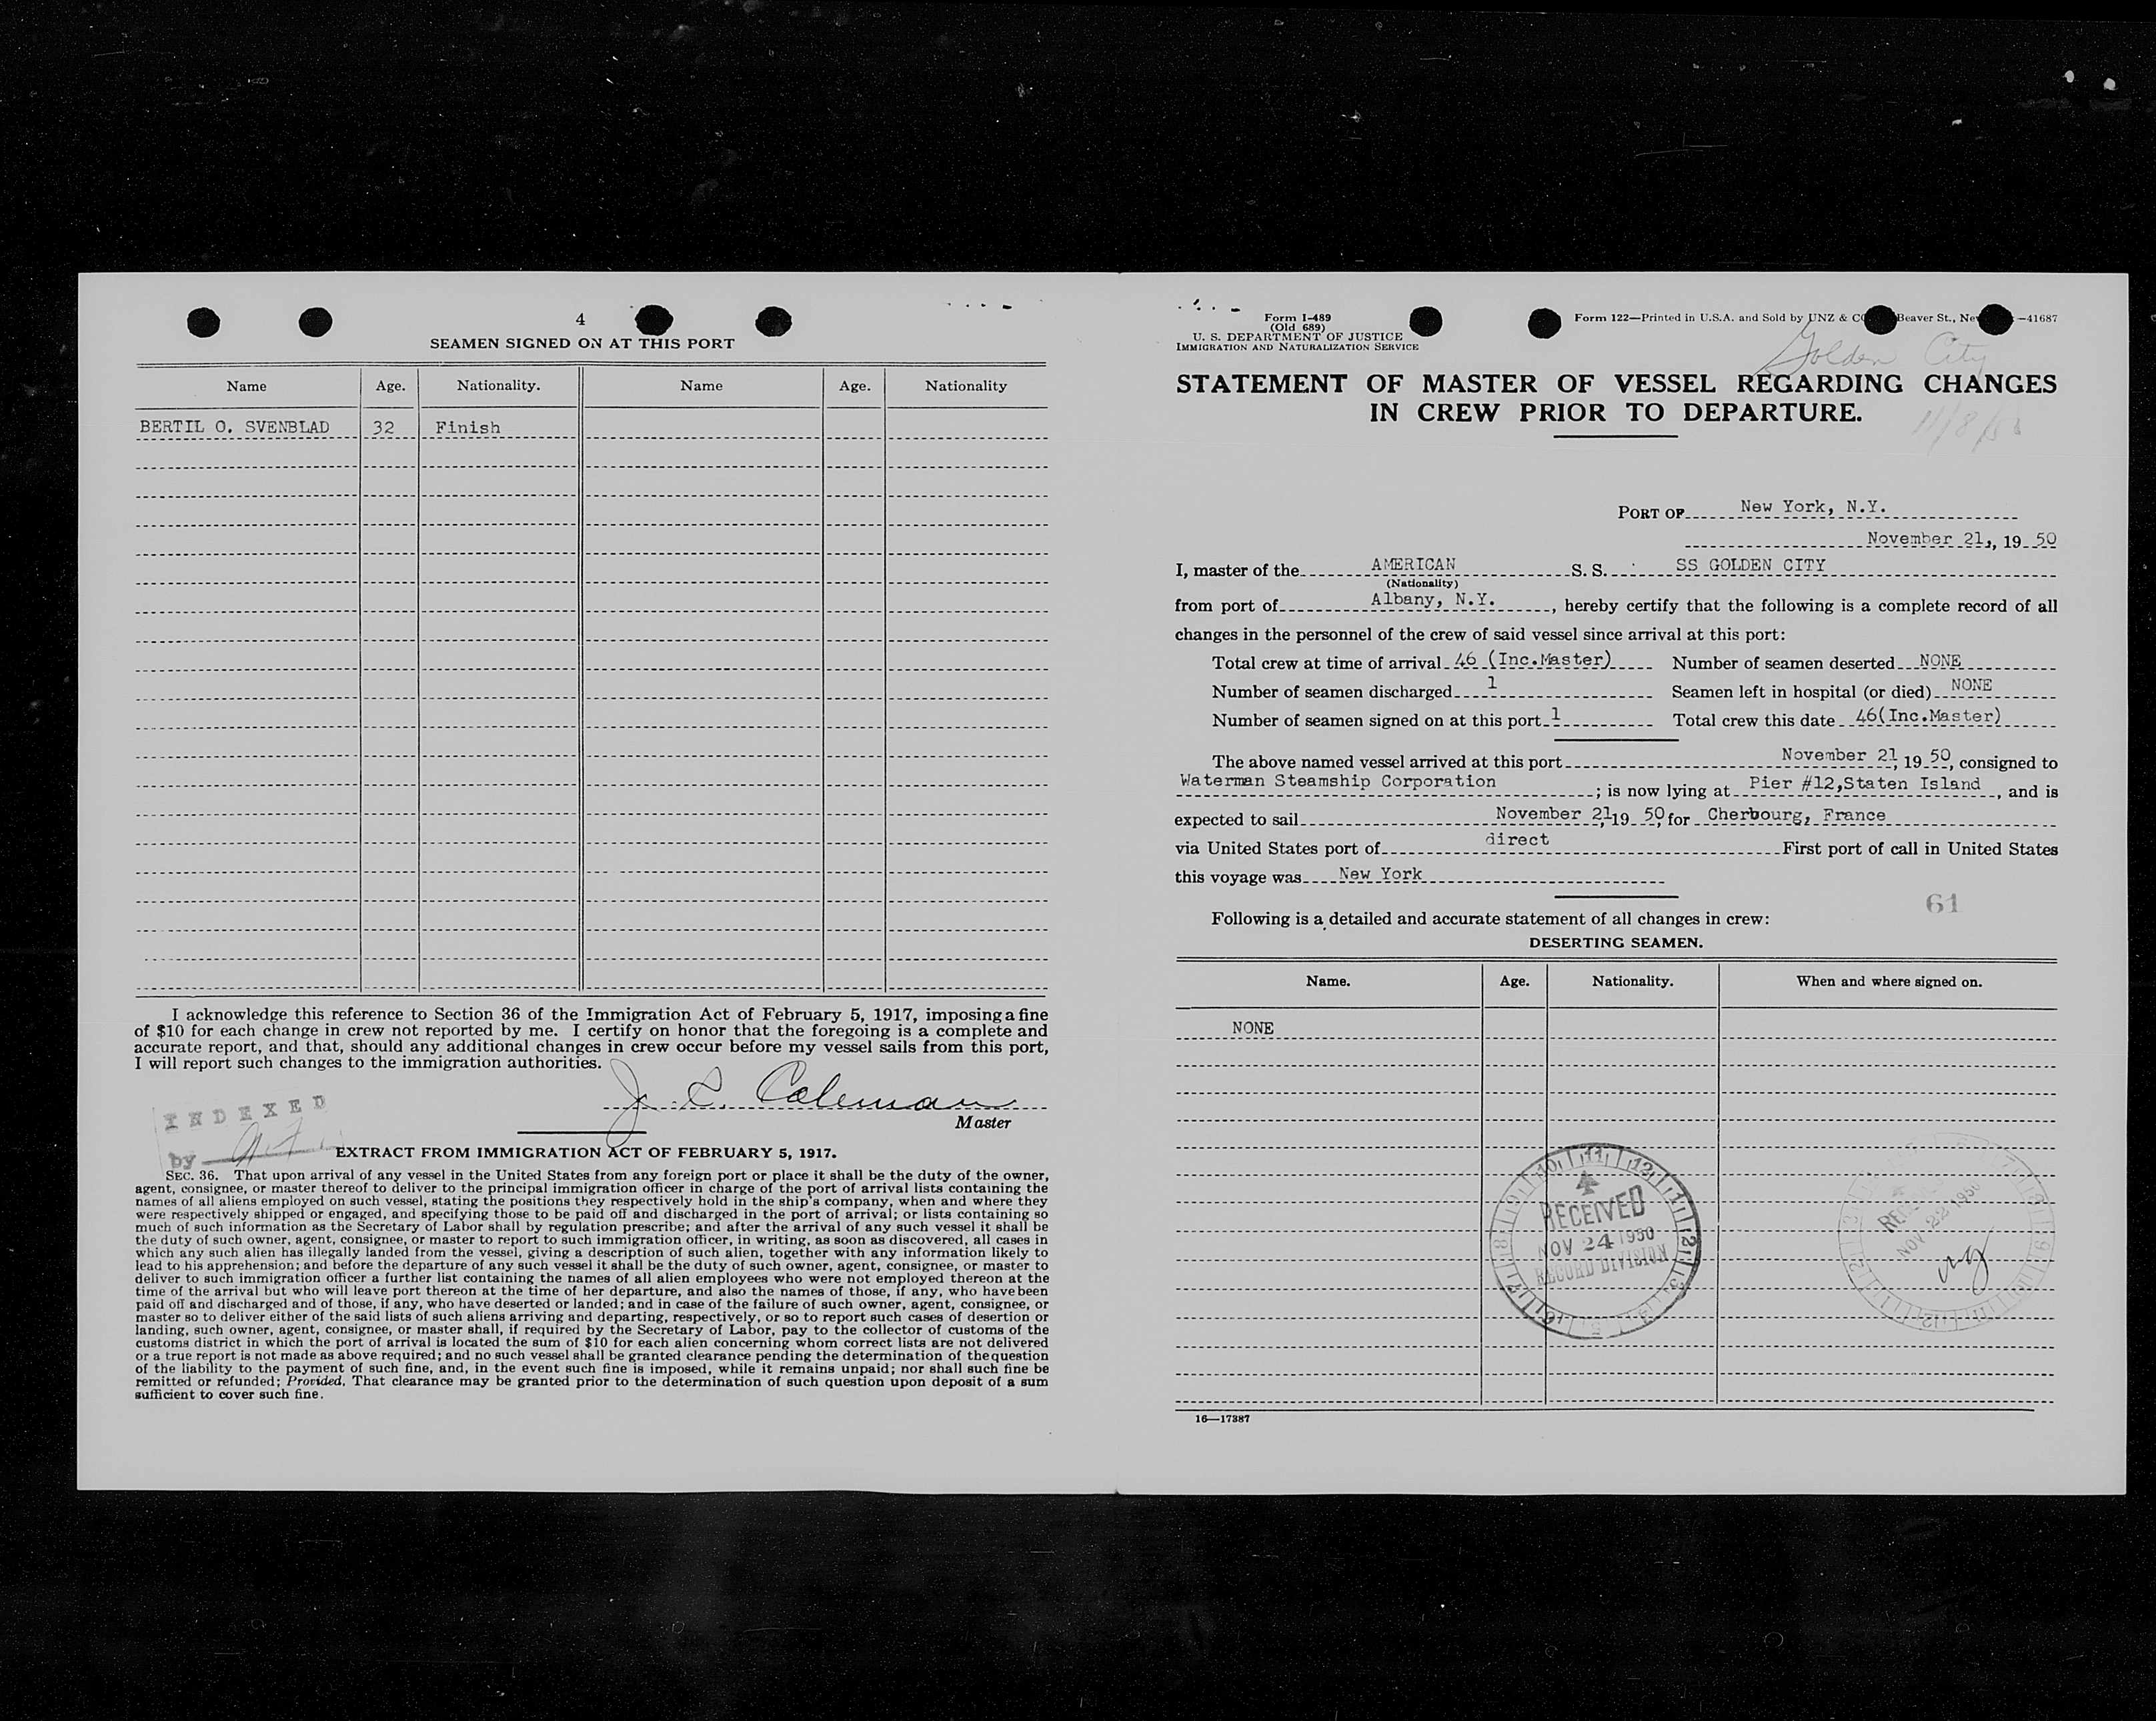 4
SEAMEN SIGNED ON AT THIS PORT
Name Age. Nationality. Name Age. Nationality
BERTIL O. SVENBLAD 32 Finish
I acknowledge this reference to Section 36 of the Immigration Act of February 5, 1917, imposing a fine
of $10 for each change in crew not reported by me. I certify on honor that the foregoing is a complete and
accurate report, and that, should any additional changes in crew occur before my vessel sails from this port,
I will report such changes to the immigration authorities.
J. E. Coleman
Master
INDEXED
by
EXTRACT FROM IMMIGRATION ACT OF FEBRUARY 5, 1917.
SEC. 36. That upon arrival of any vessel in the United States from any foreign port or place it shall be the duty of the owner,
agent, consignee, or master thereof to deliver to the principal immigration officer in charge of the port of arrival lists containing the
names of all aliens employed on such vessel, stating the positions they respectively hold in the ship's company, when and where they
were respectively shipped or engaged, and specifying those to be paid off and discharged in the port of arrival; or lists containing so
much of such information as the Secretary of Labor shall by regulation prescribe; and after the arrival of any such vessel it shall be
the duty of such owner, agent, consignee, or master to report to such immigration officer, in writing, as soon as discovered, all cases in
which any such alien has illegally landed from the vessel, giving a description of such alien, together with any information likely to
lead to his apprehension; and before the departure of any such vessel it shall be the duty of such owner, agent, consignee, or master to
deliver to such immigration officer a further list containing the names of all alien employees who were not employed thereon at the
time of the arrival but who will leave port thereon at the time of her departure, and also the names of those, if any, who have been
paid off and discharged and of those, if any, who have deserted or landed; and in case of the failure of such owner, agent, consignee, or
master so to deliver either of the said lists of such aliens arriving and departing, respectively, or so to report such cases of desertion or
landing, such owner, agent, consignee, or master shall, if required by the Secretary of Labor, pay to the collector of customs of the
customs district in which the port of arrival is located the sum of $10 for each alien concerning whom correct lists are not delivered
or a true report is not made as above required; and no such vessel shall be granted clearance pending the determination of the question
of the liability to the payment of such fine, and, in the event such fine is imposed, while it remains unpaid; nor shall such fine be
remitted or refunded; Provided, That clearance may be granted prior to the determination of such question upon deposit of a sum
sufficient to cover such fine.
Form I-489
(Old 689)
U. S. DEPARTMENT OF JUSTICE
IMMIGRATION AND NATURALIZATION SERVICE
Form 122—Printed in U.S.A. and Sold by UNZ & CO Beaver St., Ne —41687
Golden City
STATEMENT OF MASTER OF VESSEL REGARDING CHANGES
IN CREW PRIOR TO DEPARTURE.
11/8/50
PORT OF New York, N.Y.
November 21, 19 50
I, master of the AMERICAN S. S. SS GOLDEN CITY
(Nationality)
from port of Albany, N.Y., hereby certify that the following is a complete record of all
changes in the personnel of the crew of said vessel since arrival at this port:
Total crew at time of arrival 46 (Inc.Master) Number of seamen deserted NONE
Number of seamen discharged 1 Seamen left in hospital (or died) NONE
Number of seamen signed on at this port 1 Total crew this date 46(Inc.Master)
The above named vessel arrived at this port November 21, 19 50, consigned to
Waterman Steamship Corporation; is now lying at Pier #12,Staten Island, and is
expected to sail November 21, 19 50, for Cherbourg, France
via United States port of direct First port of call in United States
this voyage was New York
61
Following is a detailed and accurate statement of all changes in crew:
DESERTING SEAMEN.
Name. Age. Nationality. When and where signed on.
NONE
RECEIVED
NOV 24 1950
RECORD DIVISION
NOV 22 1950
16—17387